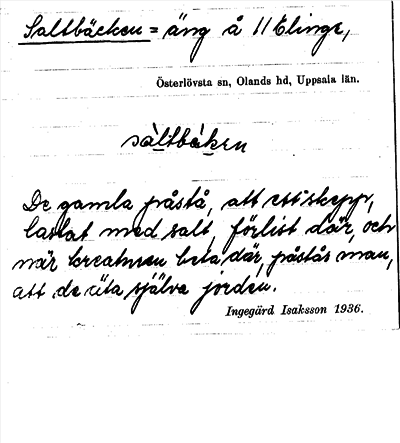 Saltbäcken = äng å 11 Elinge,
Österlövsta sn, Olands hd, Uppsala län.
sàltbàken
De gamla påstå, att ett skepp,
lastat med salt, förlist där, och
när kreaturen beta där, påstås man,
att de äta själva jorden.
Ingegärd Isaksson 1936.